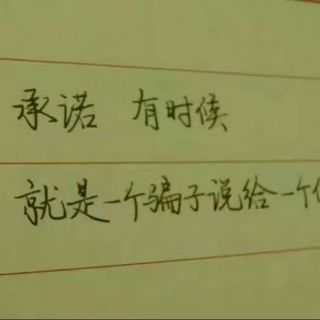 承诺 有时候
就是一个骗子说给一个